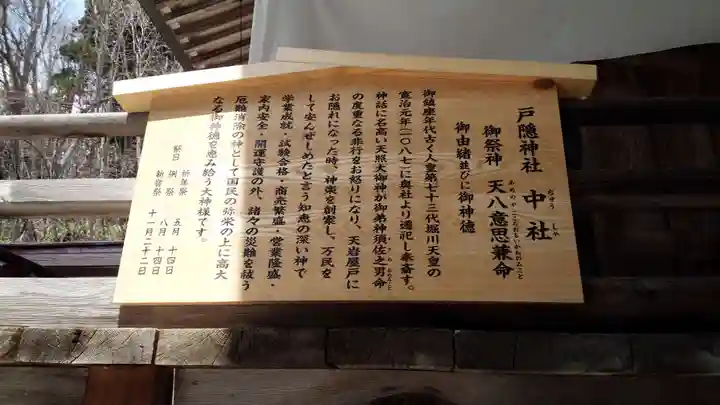 戸隠神社 中社
おちゅう しゃ
御祭神 天八意思兼命
あめのやごころおもいかねのみこと
御由緒並びに御神徳
御鎮座年代古く人皇第七十三代堀川天皇の
寛治元年(一〇八七)に奥社より遷祀し奉斎す。
神話に名高い天照大御神が御弟神須佐之男命
の度重なる非行をお怒りになり、天岩屋戸に
お隠れになった時、神楽を創案し、万民を
して安んぜしめんと言う知恵の深い神で
学業成就・試験合格・商売繁盛・営業隆盛・
家内安全・開運守護の外、諸々の災難を祓う
厄難消除の神として国民の弥栄の上に高大
なる御神徳を恵み給う大神様です。
祭日 祈年祭 五月 十四日
例祭 八月 十四日
新嘗祭 十一月二十二日